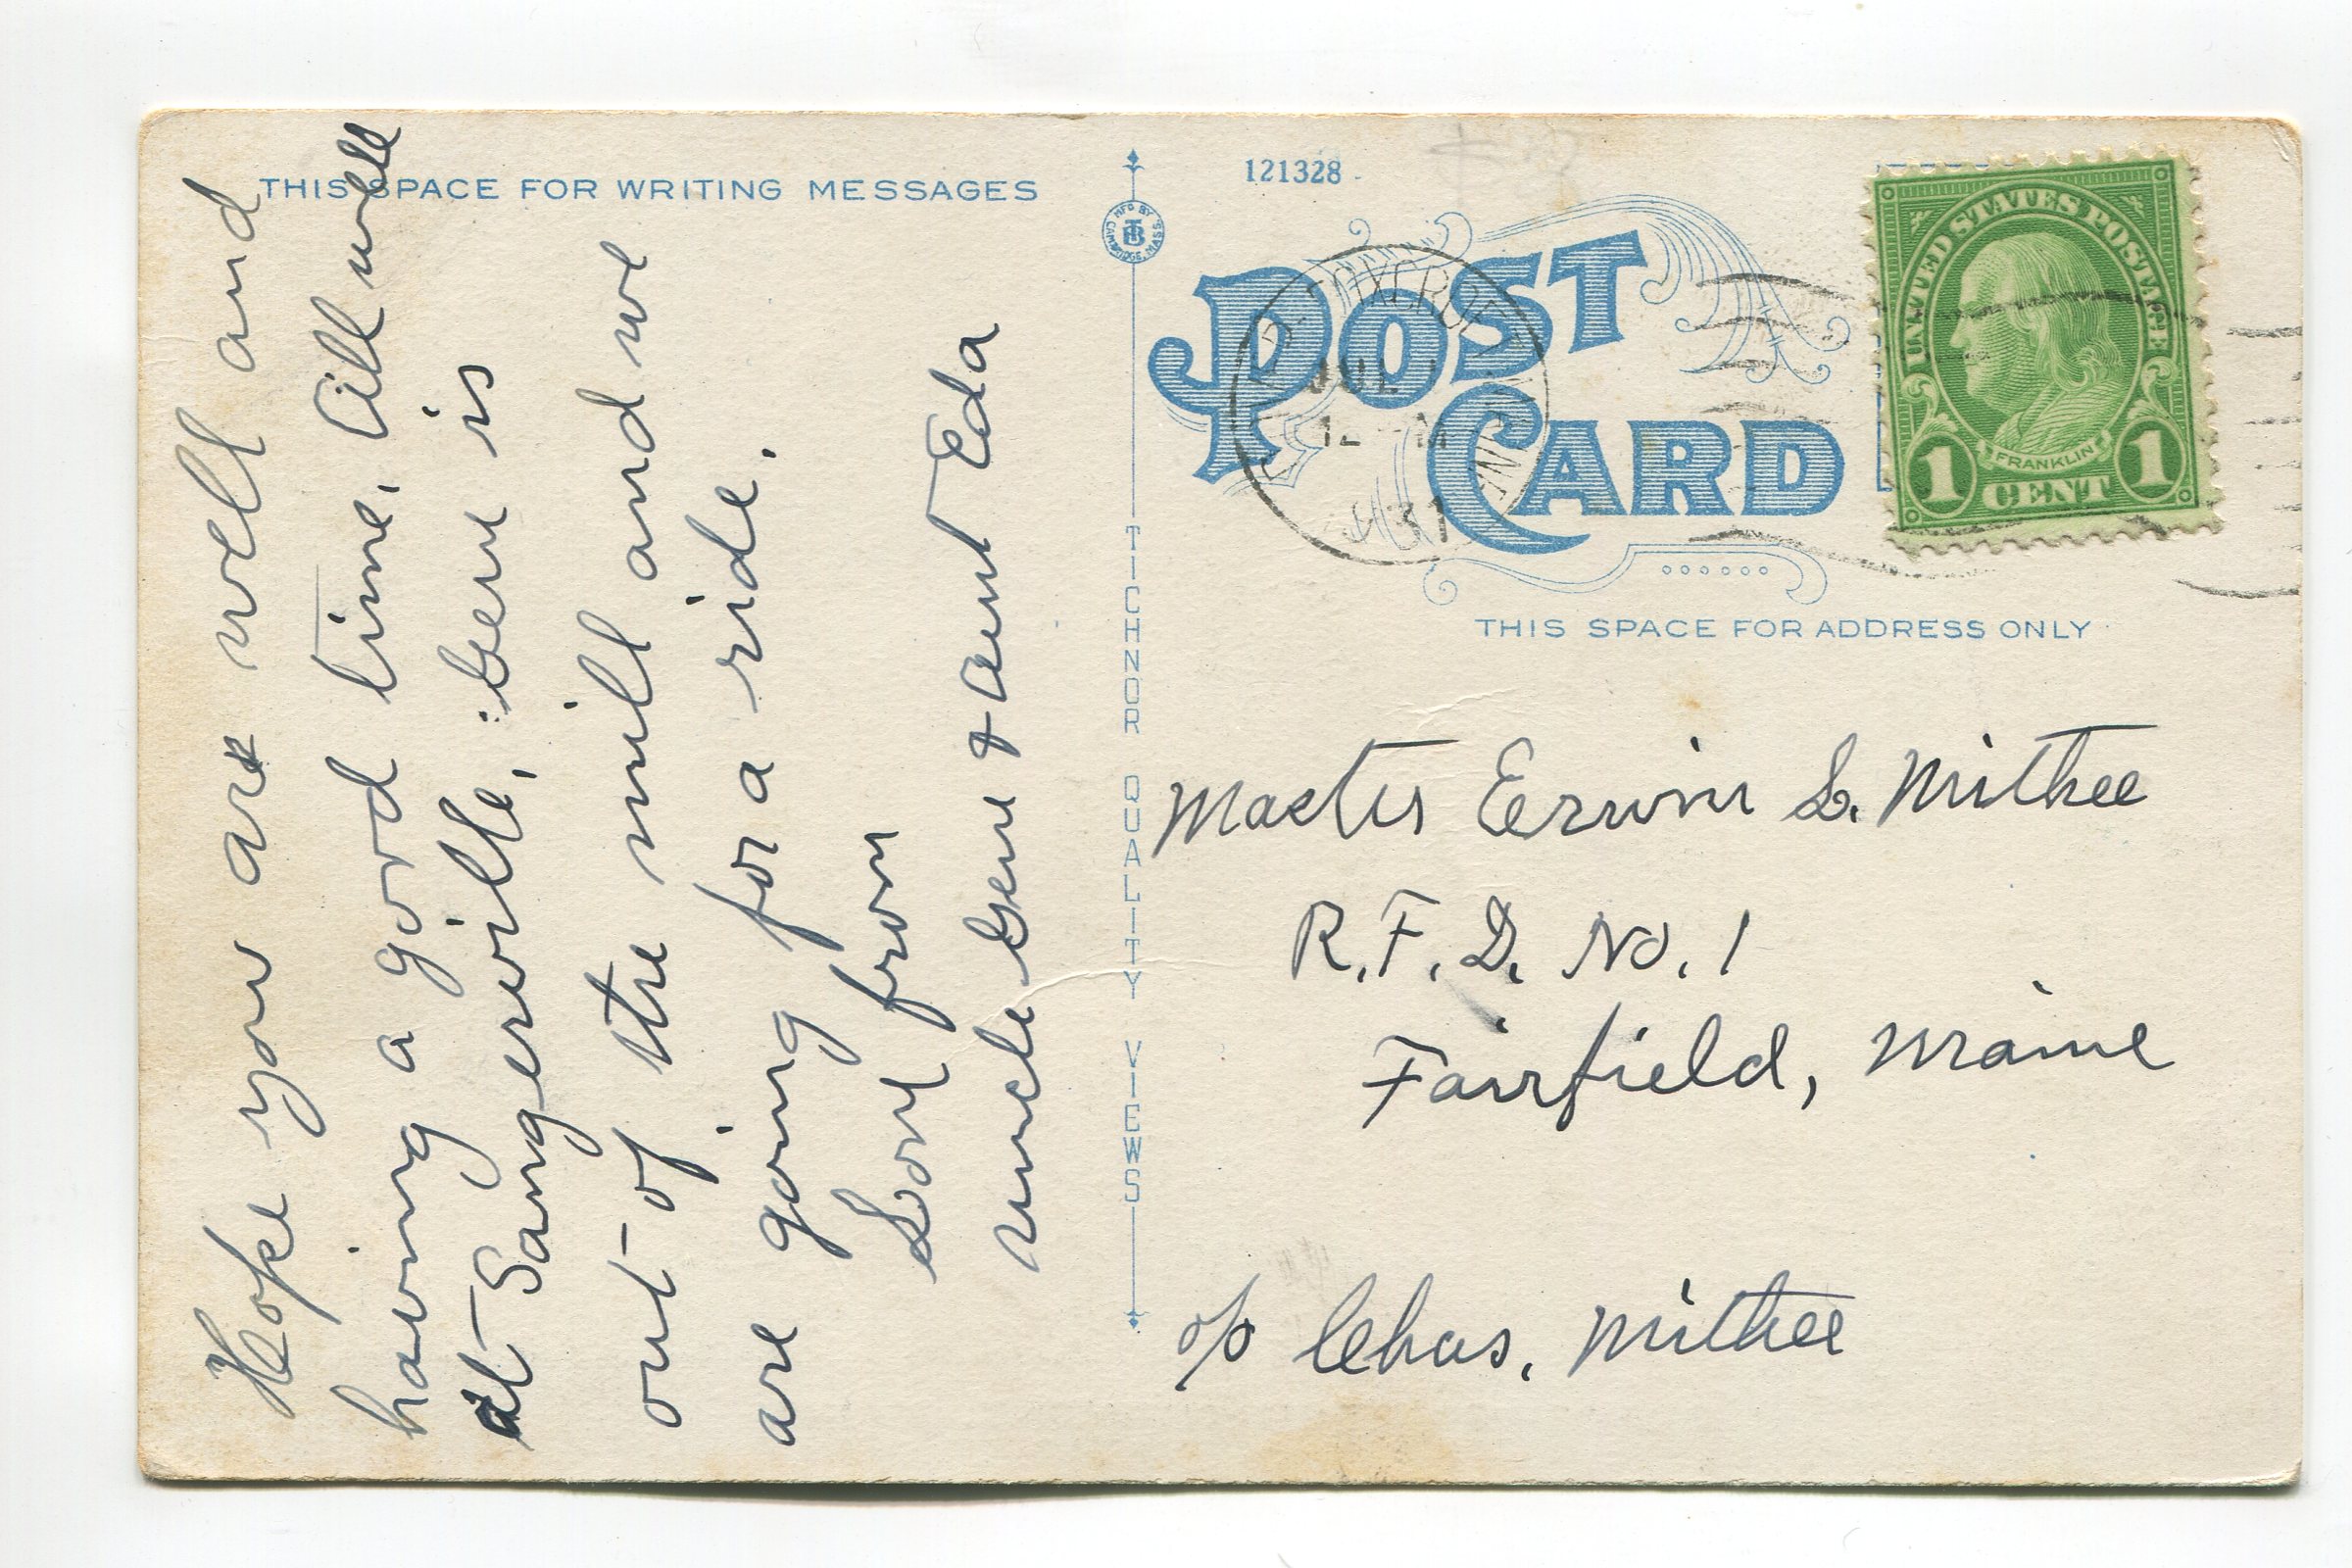 Hope you are well and
having a good time. All well
at Sangerville. Gene is
out of the mill and we
are going for a ride.
Love from
Uncle Gene & Aunt Eda
THIS SPACE FOR WRITING MESSAGES
MFD BY
CAMBRIDGE, MASS.
TICHNOR QUALITY VIEWS
121328
POST
CARD
FOXCROFT
31
UNITED STATES POSTAGE
FRANKLIN
1 CENT 1
THIS SPACE FOR ADDRESS ONLY
Master Erwin L. Mithee
R.F.D. No. 1
Fairfield, Maine
c/o Chas. Mithee